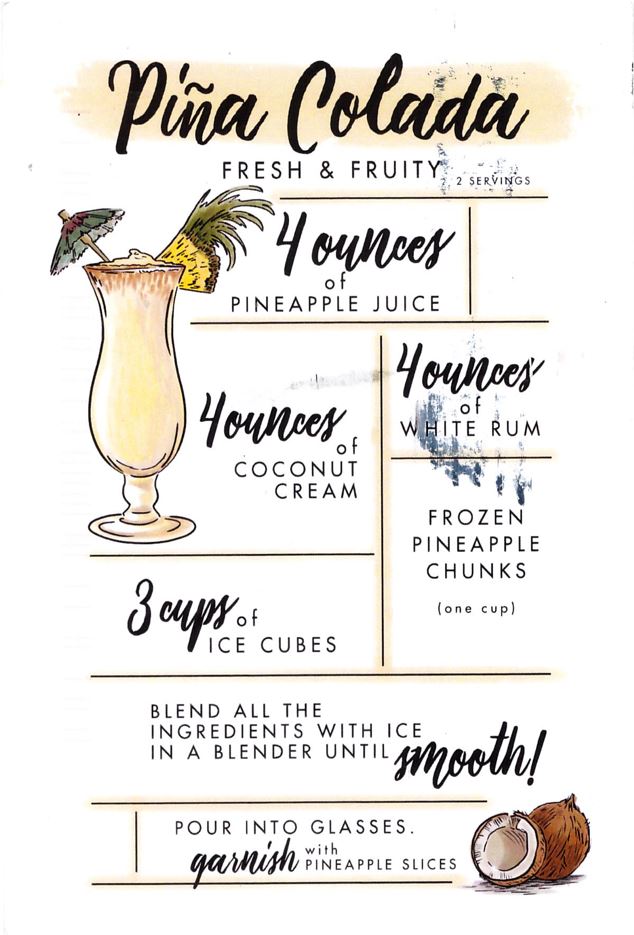 Piña Colada
FRESH & FRUITY
2 SERVINGS
4 ounces
of
PINEAPPLE JUICE
4 ounces
of
WHITE RUM
4 ounces
of
COCONUT
CREAM
FROZEN
PINEAPPLE
CHUNKS
(one cup)
3 cups of
ICE CUBES
BLEND ALL THE
INGREDIENTS WITH ICE
IN A BLENDER UNTIL smooth!
POUR INTO GLASSES.
garnish with
PINEAPPLE SLICES